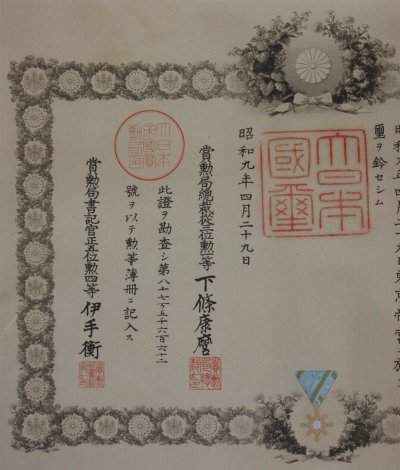 璽ヲ鈐セシム
大日本國璽
昭和九年四月二十九日
賞勲局總裁從三位勲一等 下條康麿
此證ヲ勘査シ第八十七万五千六百六十二
號ヲ以テ勲等簿冊ニ記入ス
大日本帝國賞勲局印
賞勲局書記官正五位勲四等 伊手衡